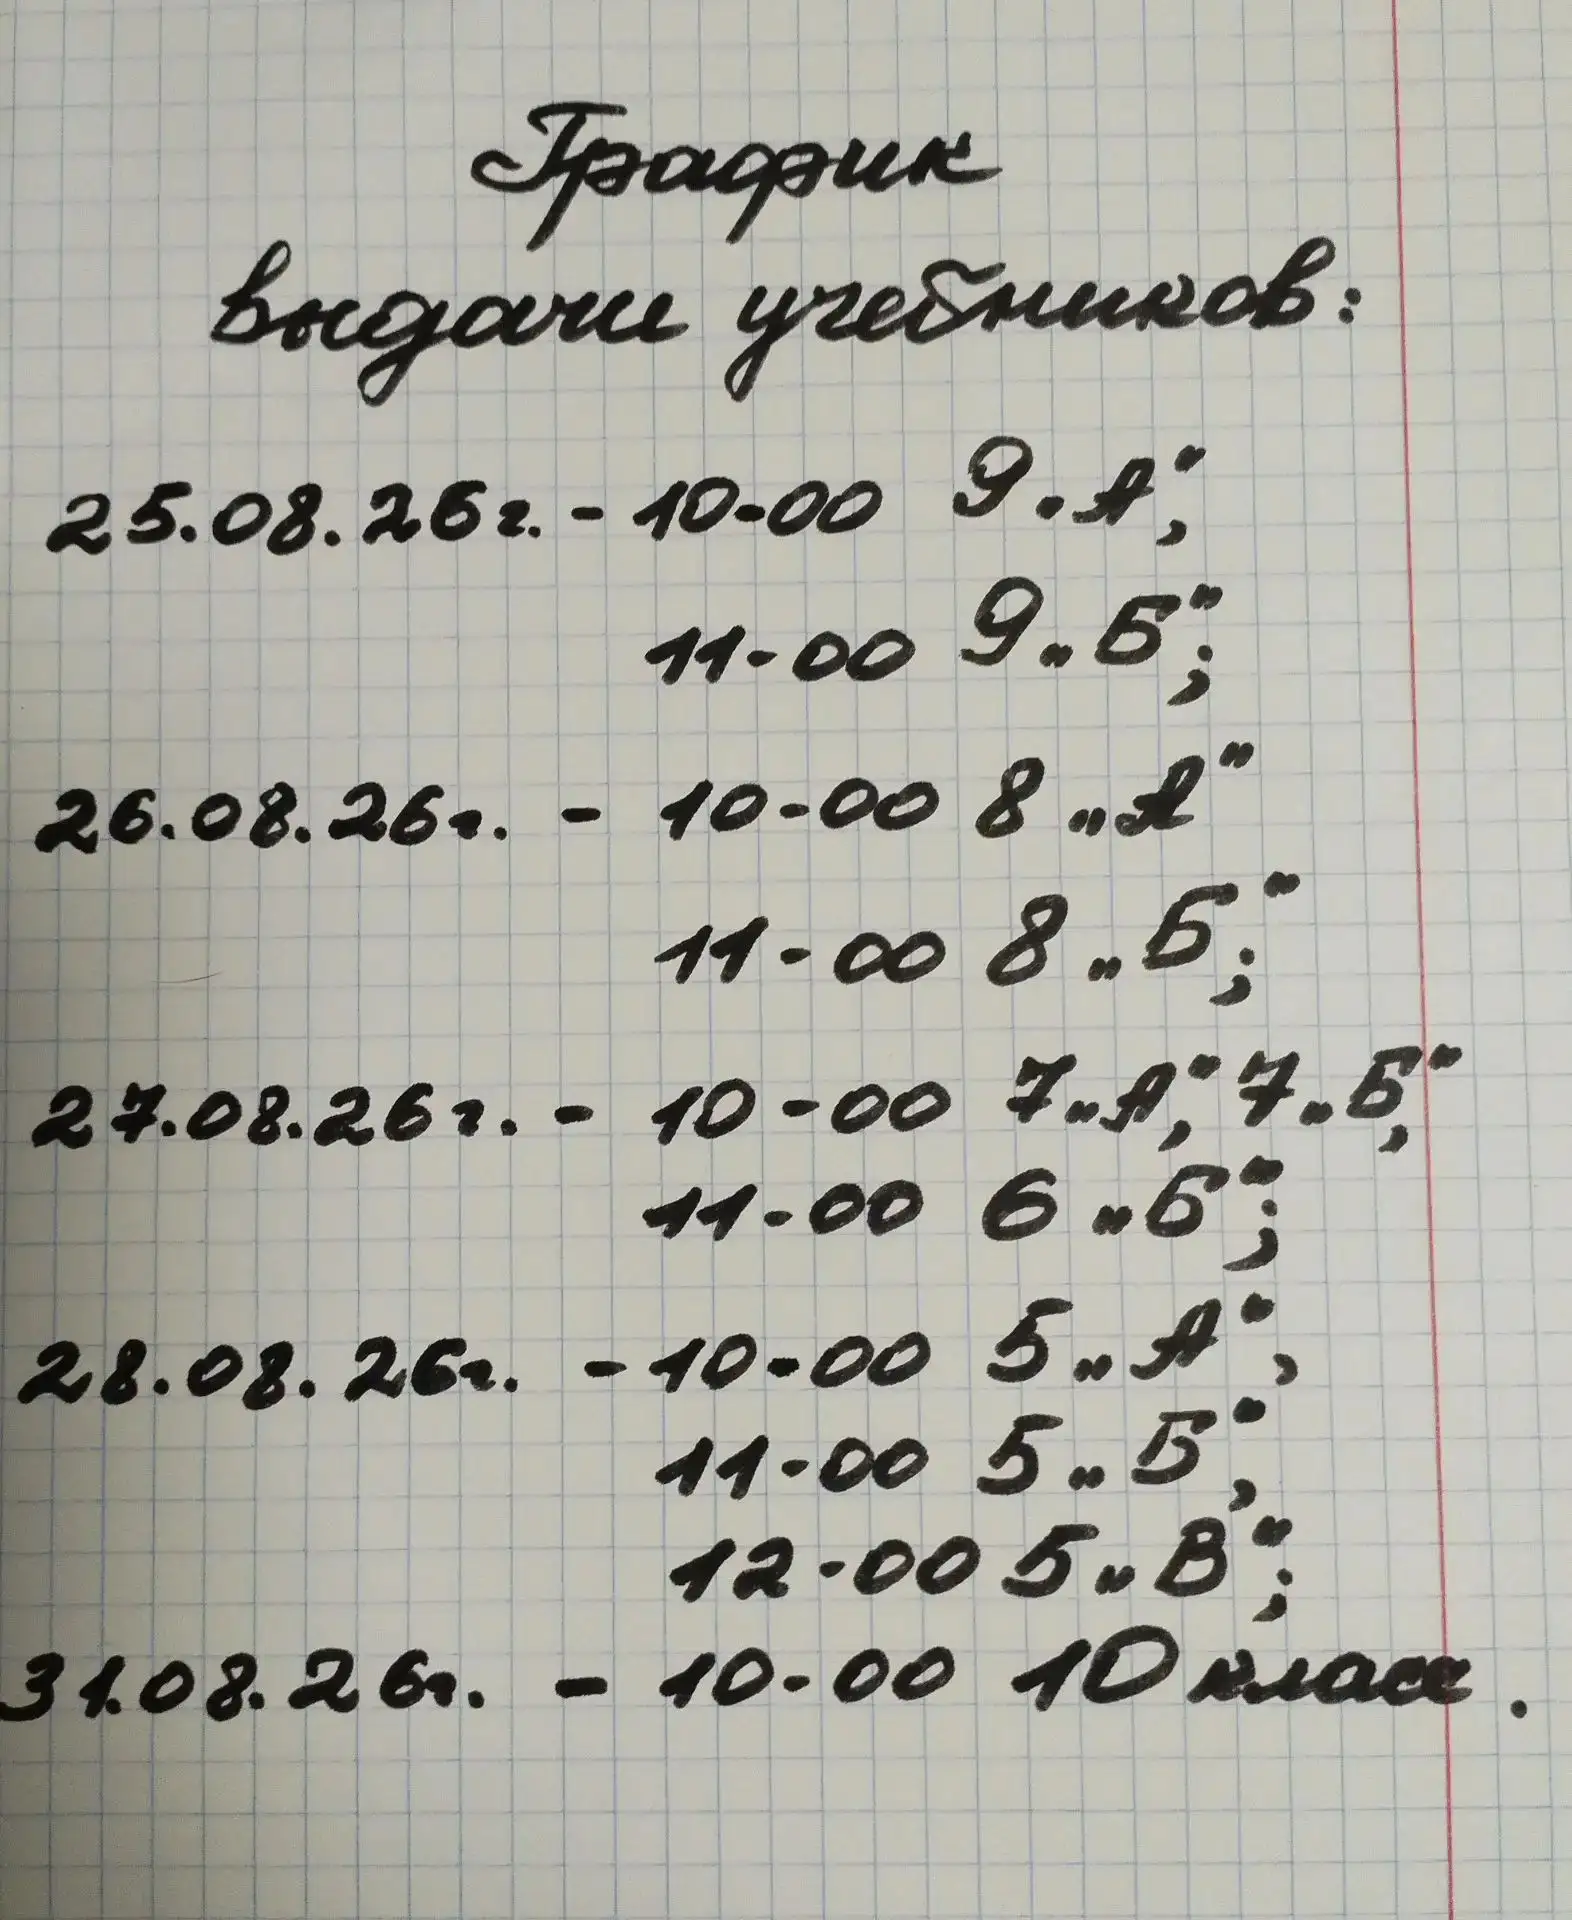 График
выдачи учебников:
25.08.26г. - 10-00 9 „А“,
11-00 9 „Б“;
26.08.26г. - 10-00 8 „А“
11-00 8 „Б“;
27.08.26г. - 10-00 7 „А“, 7 „Б“,
11-00 6 „Б“;
28.08.26г. - 10-00 5 „А“,
11-00 5 „Б“,
12-00 5 „В“;
31.08.26г. - 10-00 10 класс.